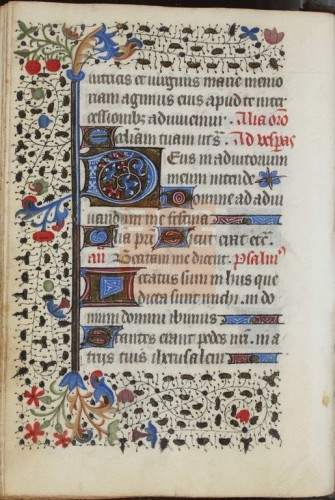 nitricis et virginis marie memo
riam agimus eius apud te inter
cessionibz adiuuemur. Alia oro
Eccl̄iam tuam ut sͣ. Ad vesp̄as
Deus in adiutorium
meum intende
Domine ad adiu
uandum me festina
Gloria pri Sicut erat etc̄.
an̄ Beatam me dicent. Psalm⁹
Letatus sum in hiis que
dicta sunt michi. in do
mum domini ibimus
Stantes erant pedes nr̄i. in a
trijs tuis iherusalem